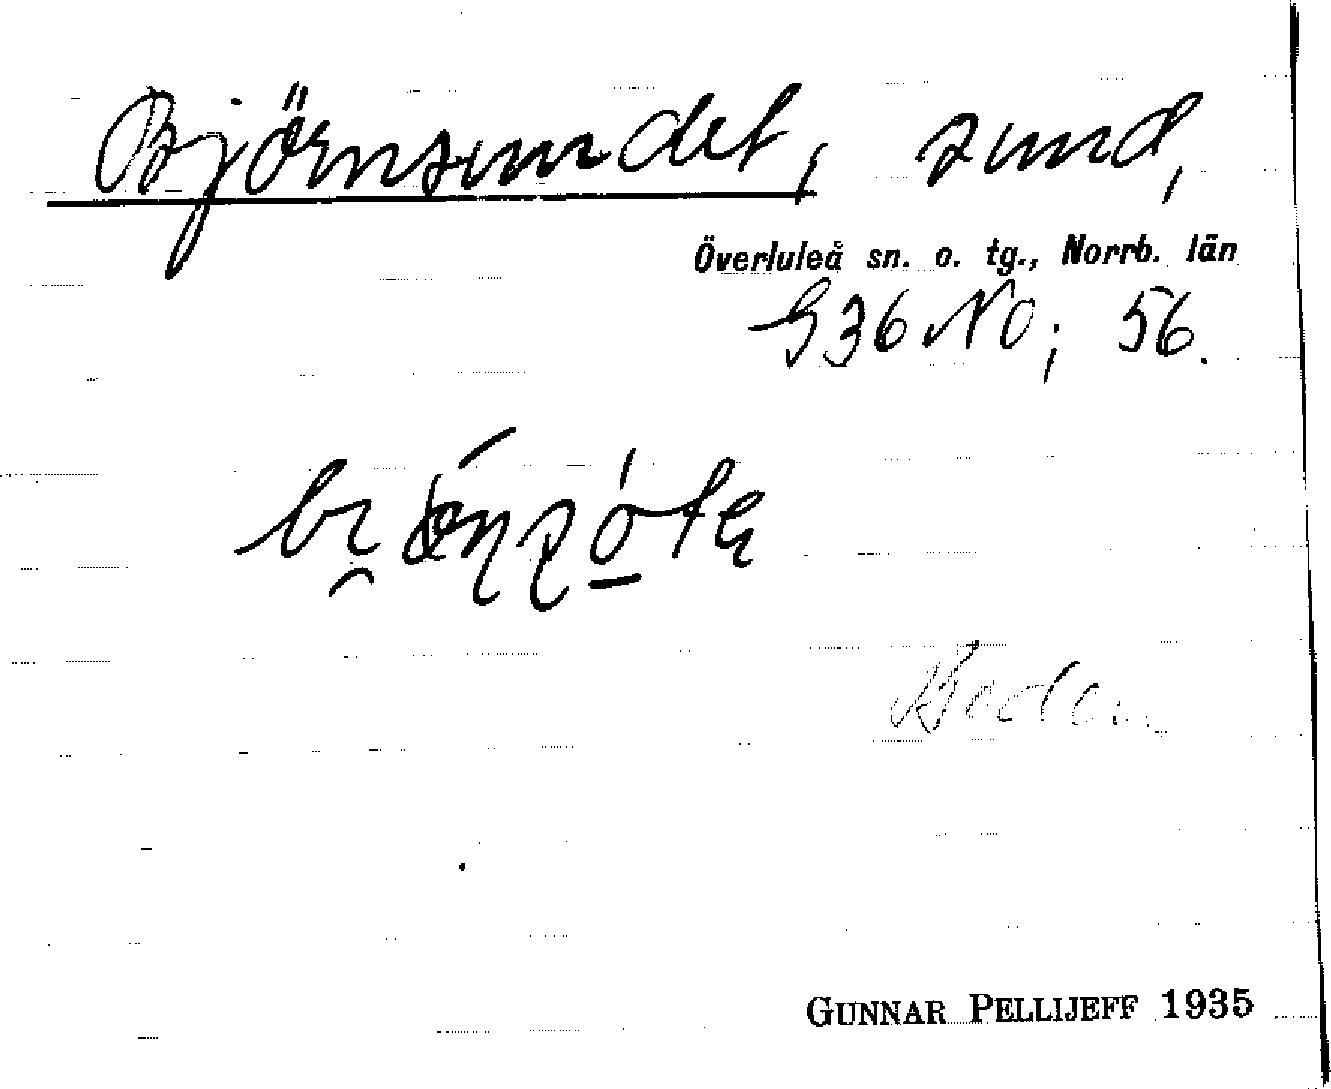 Björnsundet, sund,
Överluleå sn. o. tg., Norrb. län
G36 NO; 56.
Boden
GUNNAR PELLIJEFF 1935